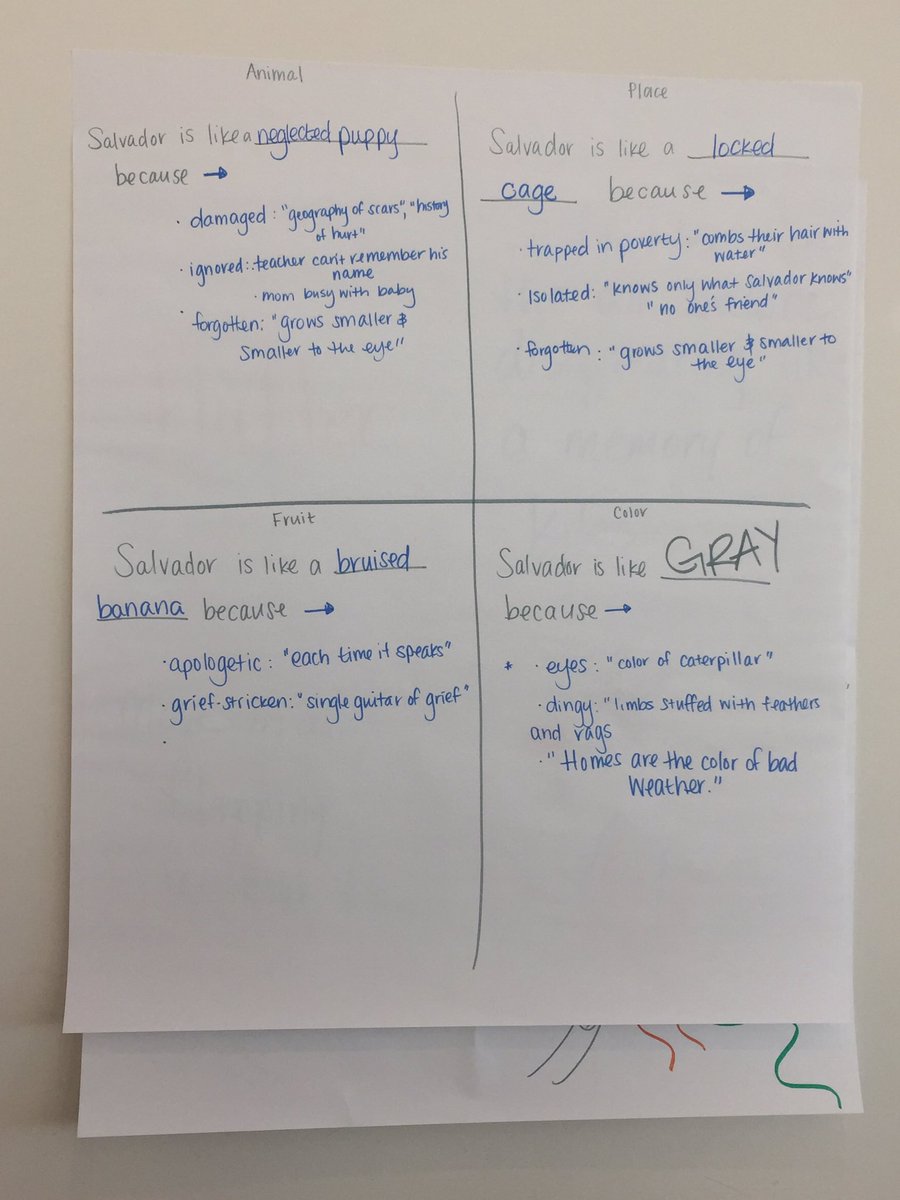 Animal
Salvador is like a neglected puppy
because →
· damaged: "geography of scars", "history
of hurt"
· ignored: teacher can't remember his
name
· mom busy with baby
· forgotten: "grows smaller &
smaller to the eye"
Place
Salvador is like a locked
cage because →
· trapped in poverty: "combs their hair with
water"
· Isolated: "knows only what Salvador knows"
"no one's friend"
· forgotten: "grows smaller & smaller to
the eye"
Fruit
Salvador is like a bruised
banana because →
· apologetic: "each time it speaks"
· grief-stricken: "single guitar of grief"
·
Color
Salvador is like GRAY
because →
* · eyes: "color of caterpillar"
· dingy: "limbs stuffed with feathers
and rags
· "Homes are the color of bad
weather."